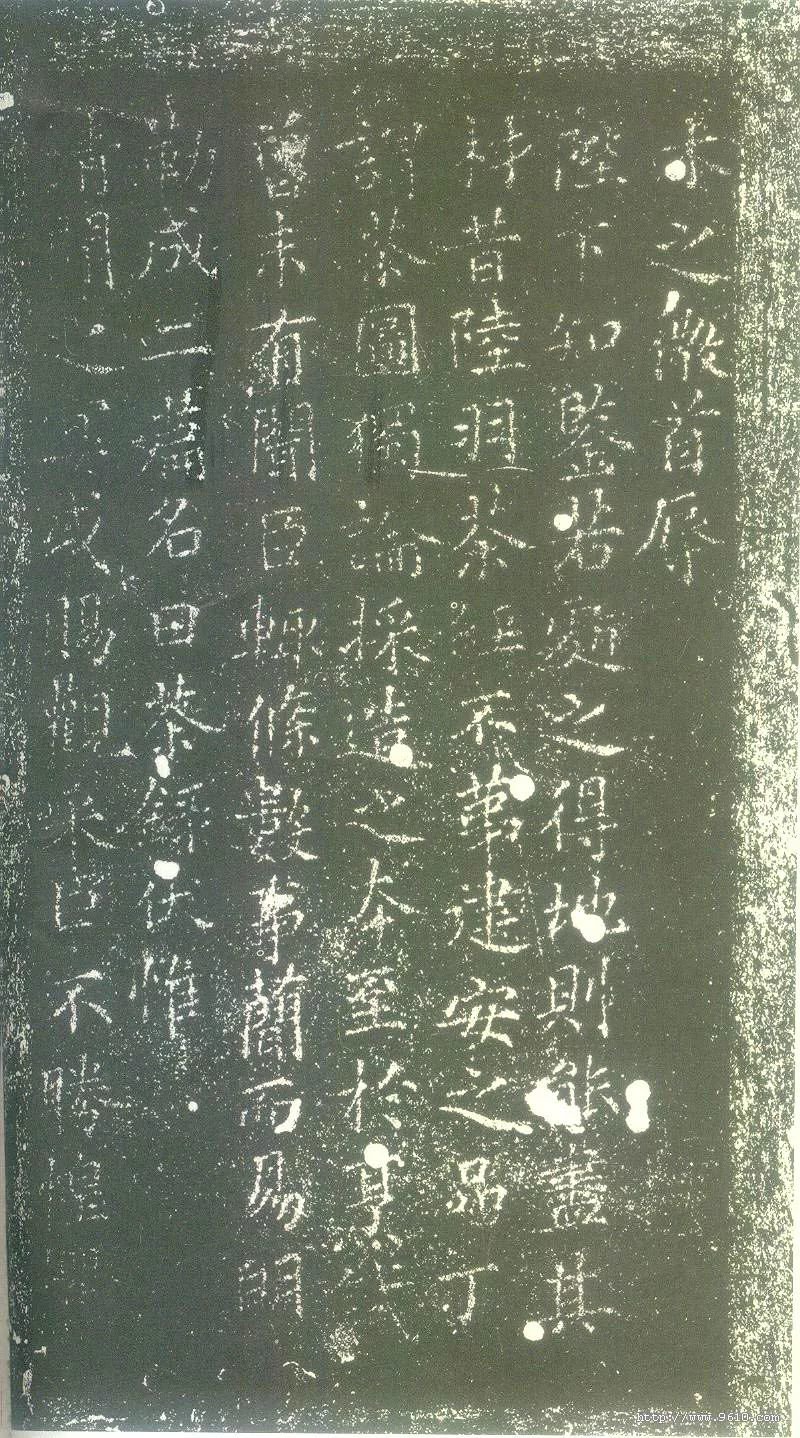 木之微首辱
陛下知鑒若處之得地則能盡其
材昔陸羽茶經不第建安之品丁
謂茶圖獨論採造之本至於烹試
曾未有聞臣輒條數事簡而易明
勒成二篇名曰茶錄伏惟
清閒之宴或賜觀采臣不勝惶懼
http://www.9610.com